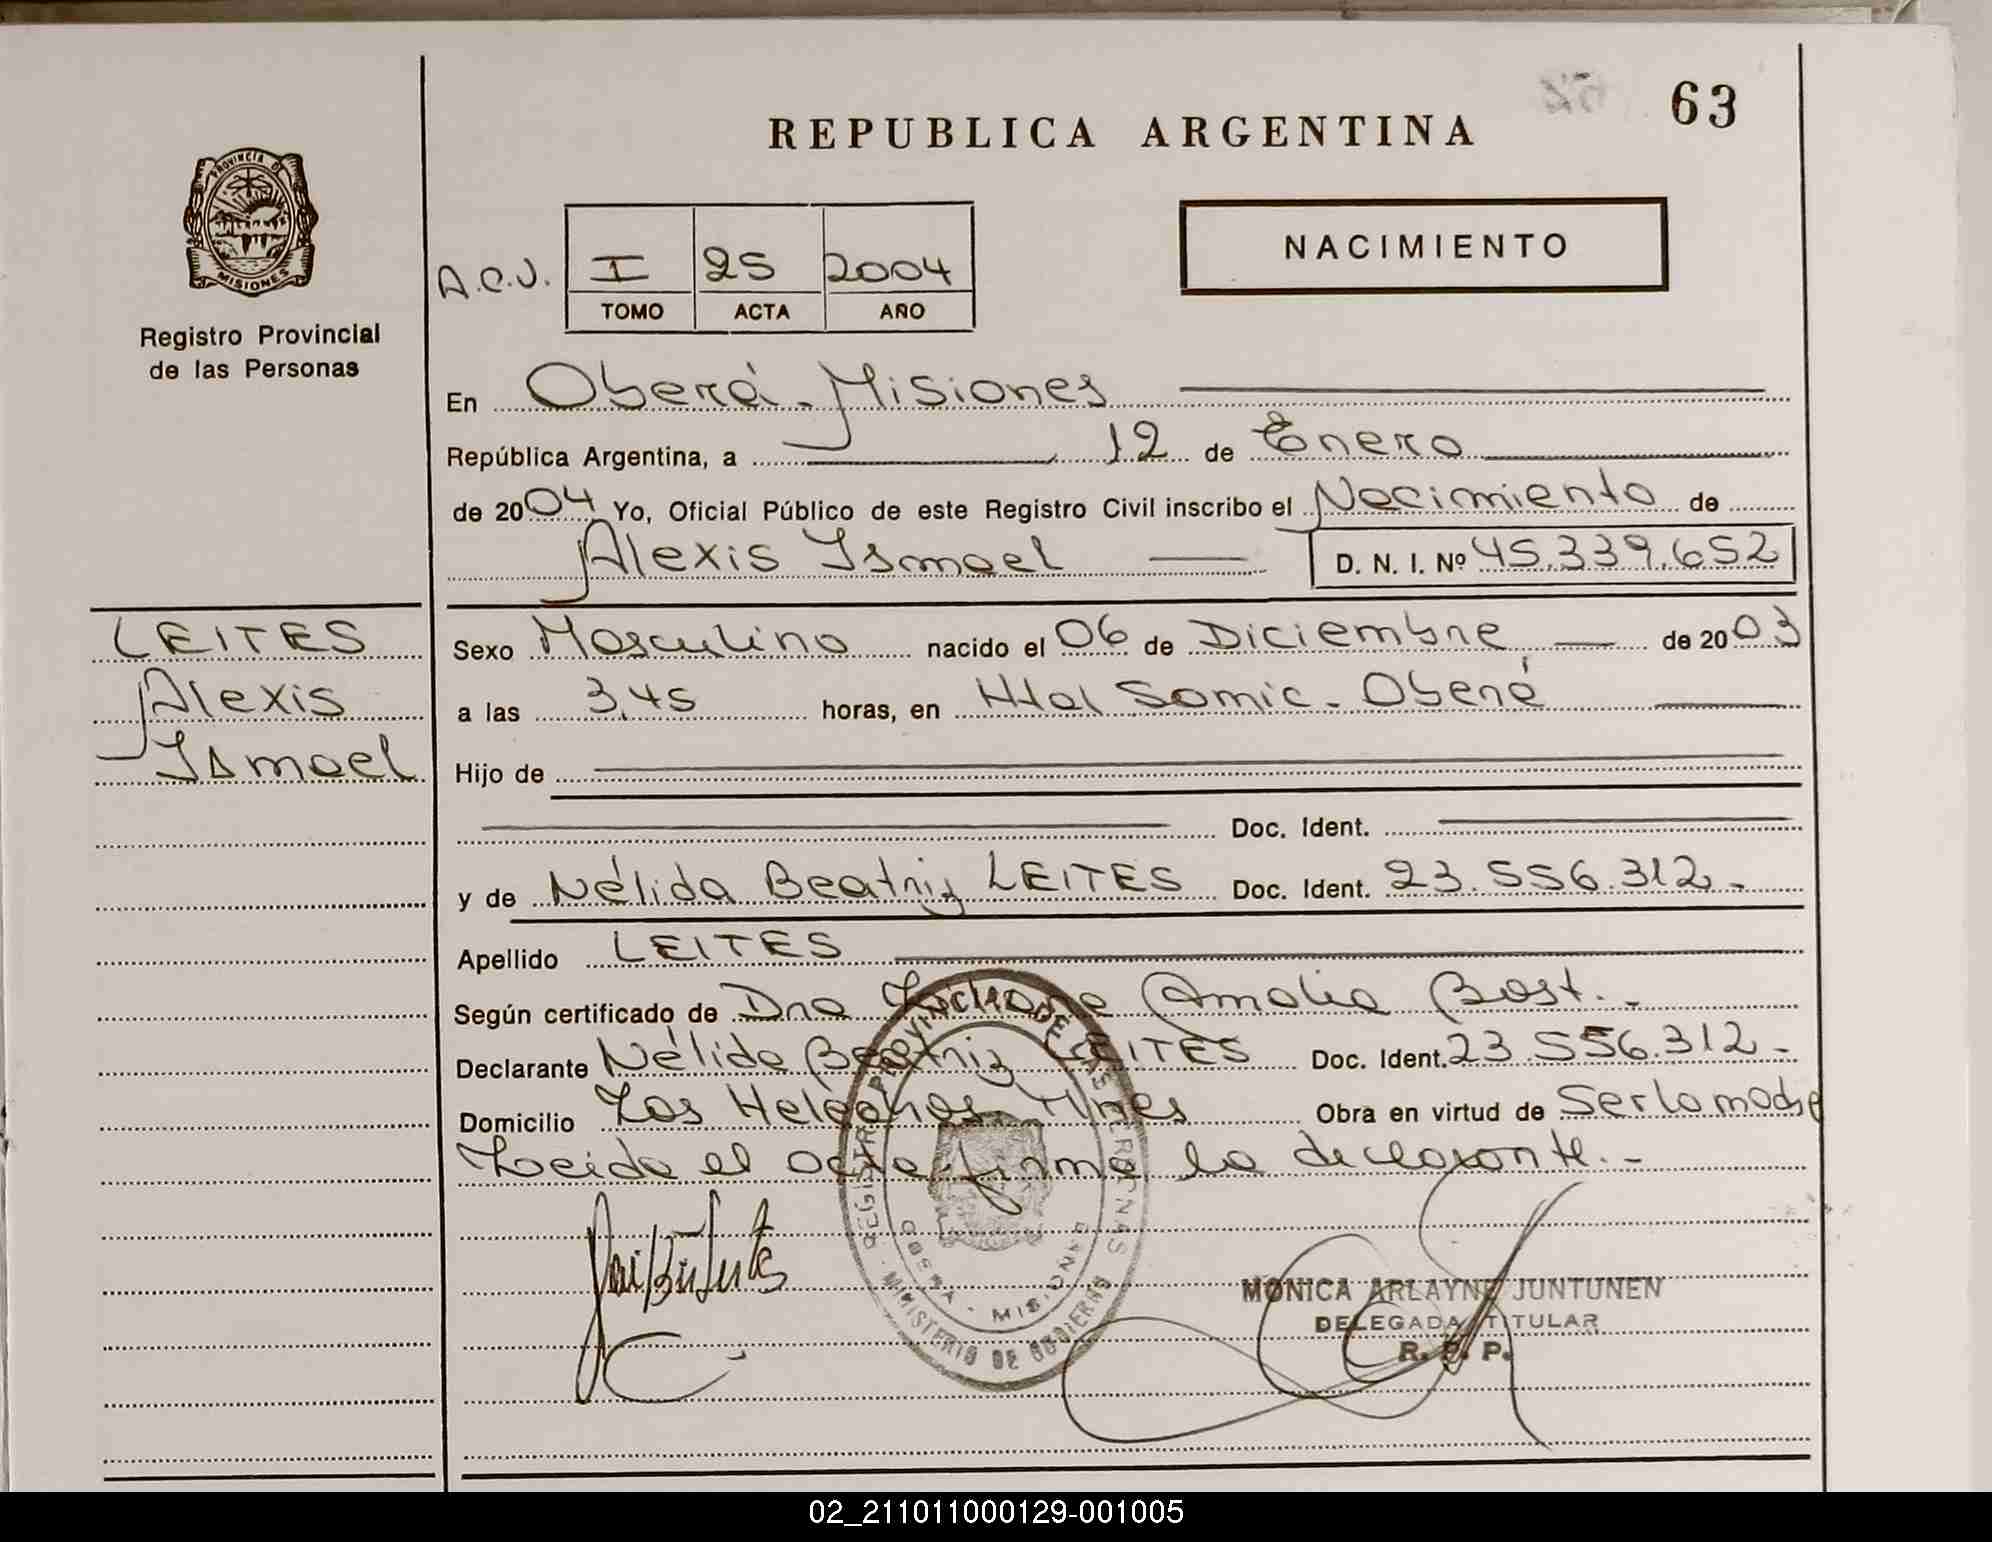 63
REPUBLICA ARGENTINA
PROVINCIA DE
MISIONES
Registro Provincial
de las Personas
NACIMIENTO
A.C.V. I 25 2004
TOMO ACTA AÑO
En Oberá - Misiones
República Argentina, a 12 de Enero
de 2004 Yo, Oficial Público de este Registro Civil inscribo el Nacimiento de
Alexis Ismael D. N. I. Nº 45.339.652
LEITES
Alexis
Ismael
Sexo Masculino nacido el 06 de Diciembre de 2003
a las 3,45 horas, en Htal Samic - Oberá
Hijo de
Doc. Ident.
y de Nélida Beatriz LEITES Doc. Ident. 23.556.312.-
Apellido LEITES
Según certificado de Dra Amalia Bast.-
Declarante Nélida Beatriz LEITES Doc. Ident. 23.556.312.-
Domicilio Los Helechos Mnes Obra en virtud de Ser la madre
Leida el acta firma la declarante.-
PROVINCIAL DE LAS PERSONAS
OBERA - MISIONES
MINISTERIO DE GOBIERNO
MONICA ARLAYNE JUNTUNEN
DELEGADA TITULAR
R. P. P.
02_211011000129-001005